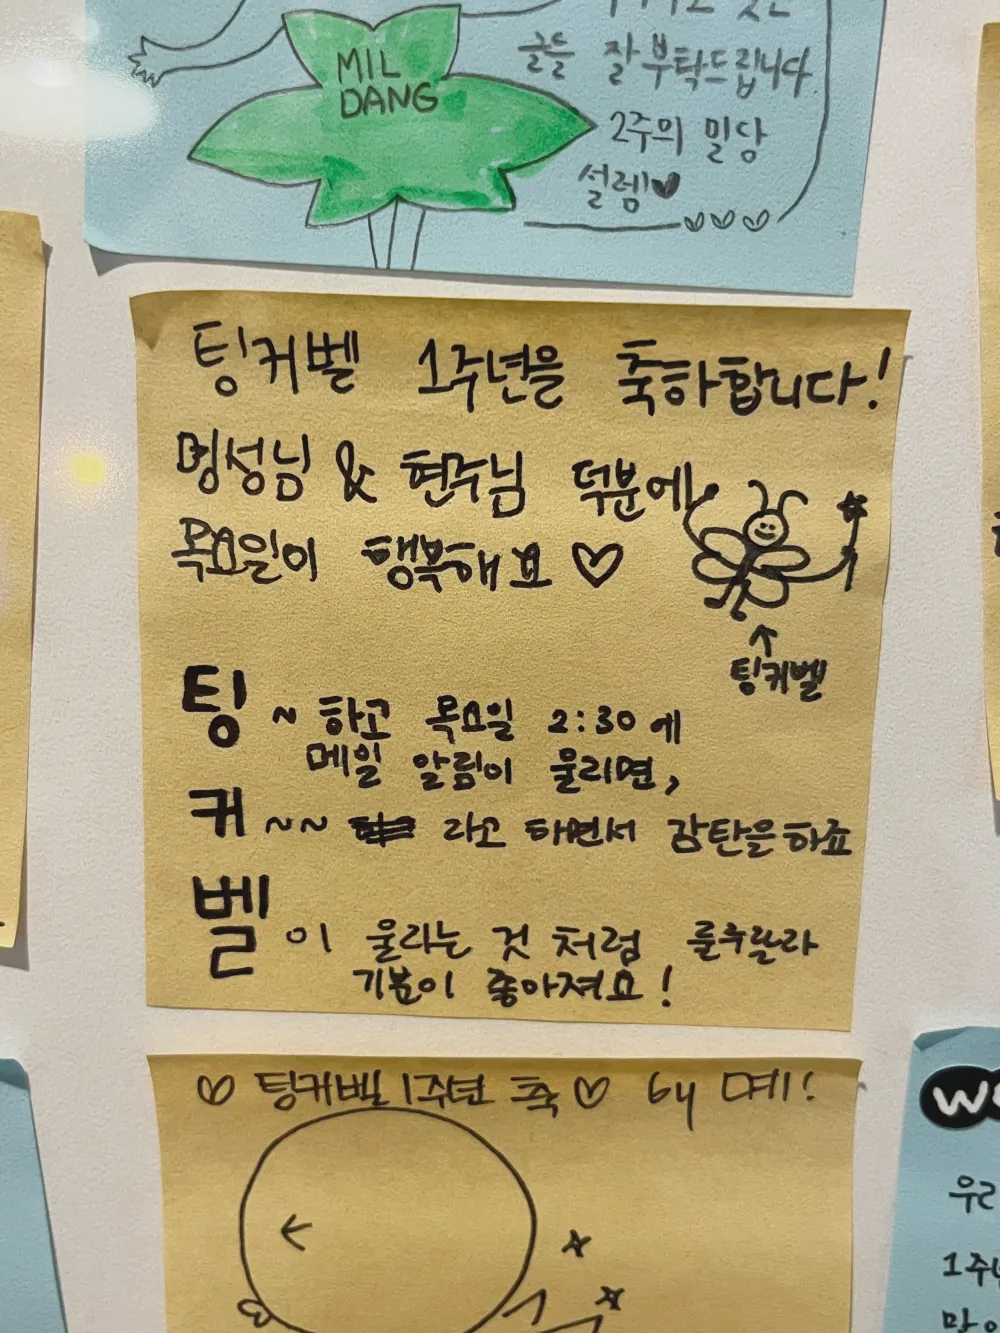 MIL
DANG
글들 잘 부탁드립니다
2주의 밀당
설렘♥
팅커벨 1주년을 축하합니다!
명성님 & 현주님 덕분에
목요일이 행복해요♡
↑
팅커벨
팅 ~ 하고 목요일 2:30에
메일 알림이 울리면,
커 ~~ 라고 하면서 감탄을하죠
벨이 울리는 것 처럼 룰루랄라
기분이 좋아져요!
♡ 팅커벨 1주년 축♡ by 몌!
우리
1주년